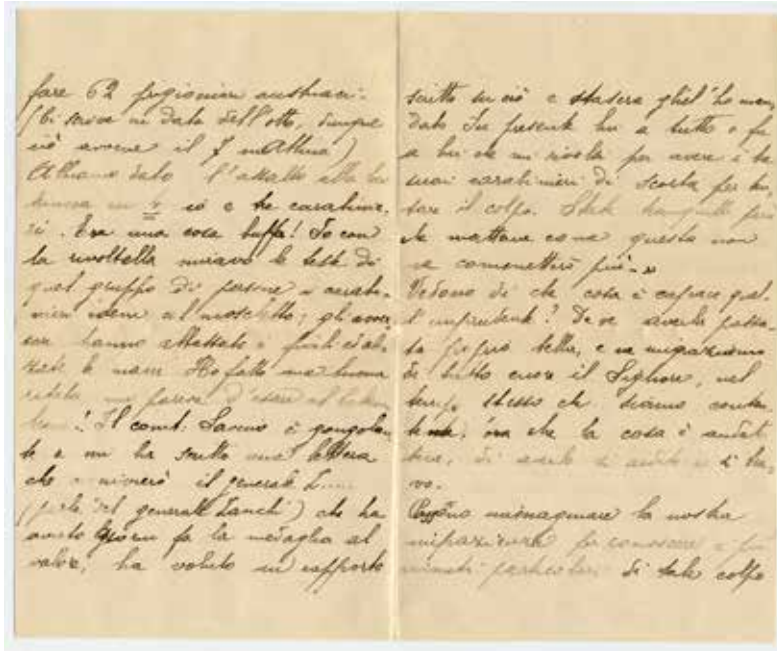 fare 62 prigionieri austriaci.
(Ci scrive in data dell'otto, dunque
ciò avvenne il 7 mattina)
Abbiamo dato l'assalto alla
in 4 io e tre carabinie-
ri. Era una cosa buffa! Io con
la rivoltella miravo le teste di
quel gruppo di persone e carabi-
nieri idem col moschetto; gli avver-
sari hanno abbassato i fucili ed al-
zate le mani. Ho fatto una buona
risata mi pareva d'essere al
! Il comt. Savino è gongolan-
te e mi ha scritto una lettera
che il generale
(parla del generale Zanchi) che ha
avuto giorni fa la medaglia al
valore, ha voluto un rapporto
scritto su ciò e stasera gliel'ho man-
dato. Fu presente lui a tutto e fu
a lui che mi rivolsi per avere i
suoi carabinieri di scorta per
tare il colpo. State tranquilli
che mattane come questa non
ne commetterò più.»
Vedono di che cosa è capace quel-
l'imprudente? Deve averla passa-
ta proprio bella, e ne ringraziamo
di tutto cuore il Signore, nel
tempo stesso che siamo conten-
te ora che la cosa è andata
bene, di averlo sì ardito e sì bra-
vo.
Possono immaginare la nostra
impazienza per conoscere i più
minuti particolari di tale colpo